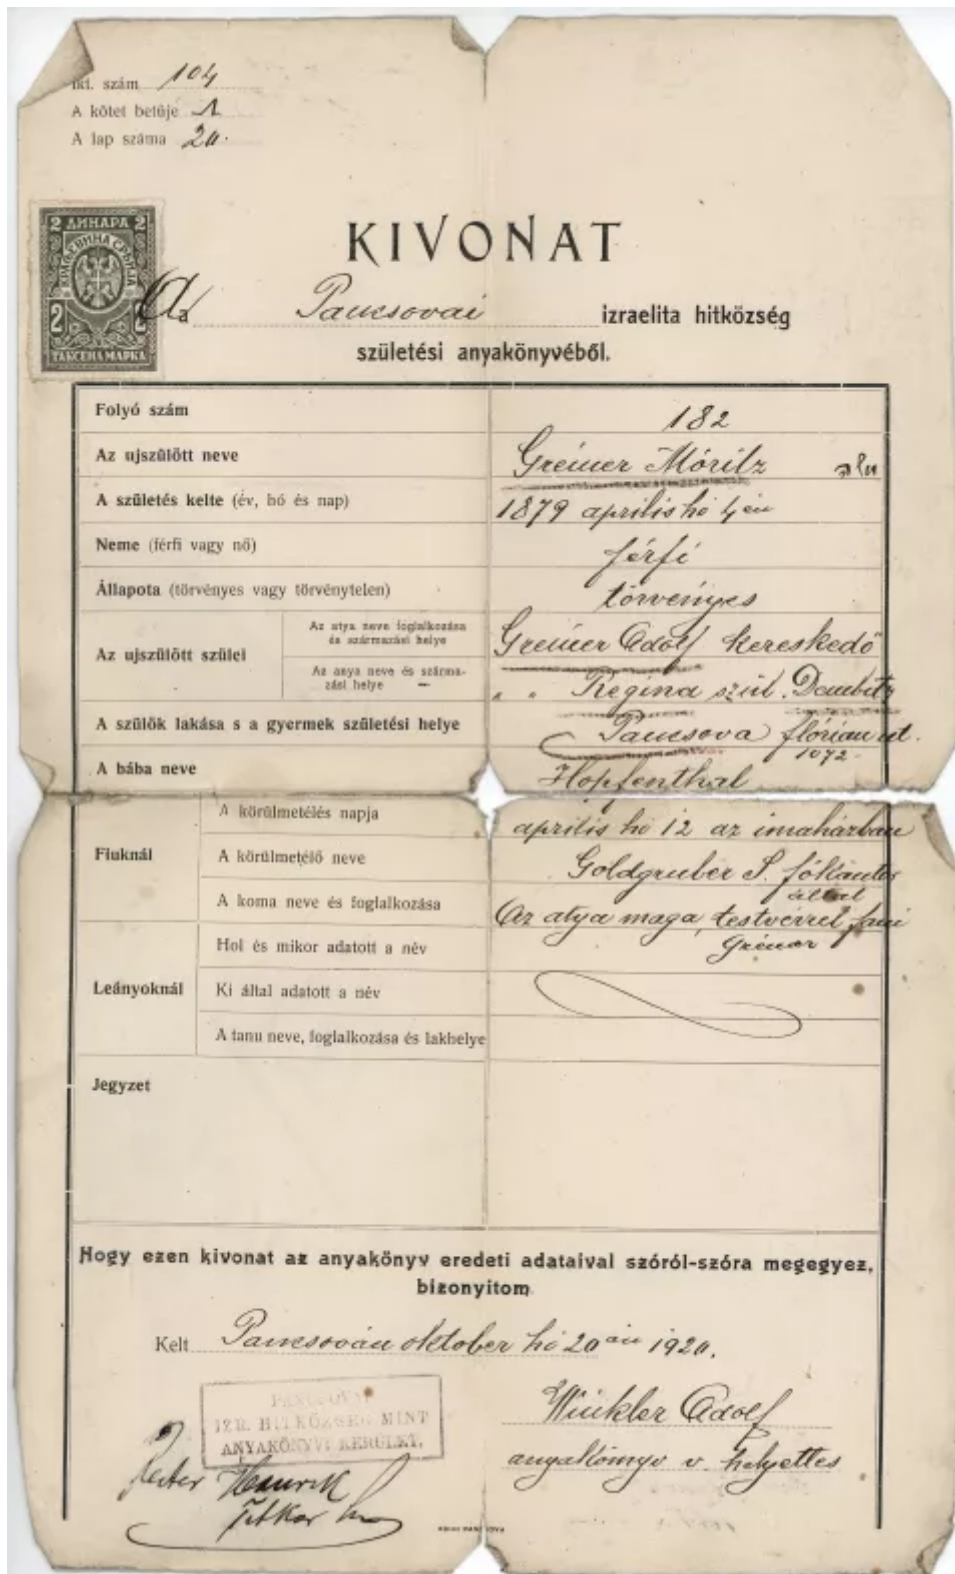 Ikt. szám 104
A kötet betűje 1
A lap száma 20.
2 ДИНАРА 2
КРАЉЕВИНА СРБИЈА
2 2
ТАКСЕНА МАРКА
KIVONAT
A Pancsovai izraelita hitközség
születési anyakönyvéből.
Folyó szám 182
Az ujszülött neve Greiner Móritz משה
A születés kelte (év, hó és nap) 1879 április hó 4 én
Neme (férfi vagy nő) férfi
Állapota (törvényes vagy törvénytelen) törvényes
Az ujszülött szülei
Az atya neve foglalkozása és származási helye Greiner Adolf kereskedő
Az anya neve és származási helye — „ „ Regina szül. Dambitz
A szülők lakása s a gyermek születési helye Pancsova flórian ut. 1072.
A bába neve Hopfenthal
Fiuknál
A körülmetélés napja április hó 12 az imaházban
A körülmetélő neve Goldgruber S. főkántor által
A koma neve és foglalkozása Az atya maga, testvérrel Greiner
Leányoknál
Hol és mikor adatott a név
Ki által adatott a név
A tanu neve, foglalkozása és lakhelye
Jegyzet
Hogy ezen kivonat az anyakönyv eredeti adataival szóról-szóra megegyez,
bizonyitom
Kelt Pancsován oktober hó 20 án 1920.
PANCSOVAI
IZR. HITKÖZSÉG MINT
ANYAKÖNYVI KERÜLET.
Winkler Adolf
anyakönyv v. helyettes
Henrik
Titkar